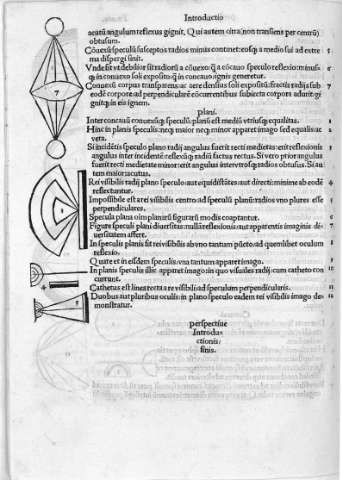 Introductio
acutū angulum reflexus gignit. Qui autem citra (non transiens per centrū)
obtusum.
Cōuexū speculū susceptos radios minus continet: eosq; a medio sui ad extre
ma dispergi sinit.
Vnde fit vt debilior sit radiorū a cōuexo: q̄ a cōcauo speculo reflexio: minus
q; in conuexo soli exposito: q̄ in concauo ignis generetur.
Conuexū corpus transparens: aere densius soli expositū: fractis radijs sub
eodē corpore: ad perpendicularē cōcurrentibus subiecta corpora adurit: gi
gnitq; in eis ignem.
plani.
Inter concauū conuexūq; speculū: planū est mediū vtriusq; equalitas.
Hinc in planis speculis: neq; maior neq; minor apparet imago: sed equalis ac
vera.
Si incidētis speculo plano radij angulus fuerit recti medietas: erit reflexionis
angulus inter incidentē reflexūq; radiū factus rectus. Si vero prior angulus
fuerit recti medietate minor: erit angulus inter vtrosq; radios obtusus. Si au
tem maior: acutus.
Rei visibilis radij plano speculo aut equidistātes aut directi: minime ab eodē
reflectuntur.
Impossibile est a rei visibilis centro ad speculū planū: radios vno plures esse
perpendiculares.
Specula plana oīm planarū figurarū modis coaptantur.
Figure speculi plani diuersitas: nullā reflexionis aut apparentis imaginis di
uersitatem affert.
In speculis planis fit rei visibilis ab vno tantum pūcto: ad quemlibet oculum
reflexio.
Quare et in eisdem speculis: vna tantum apparet imago.
In planis speculis illic apparet imago: in quo visuales radij cum catheto con
currunt.
Cathetus est linea recta a re visibili ad speculum perpendicularis.
Duobus aut pluribus oculis: in plano speculo eadem rei visibilis imago de
monstratur.
perspectiue
Introdu-
ctionis:
finis.